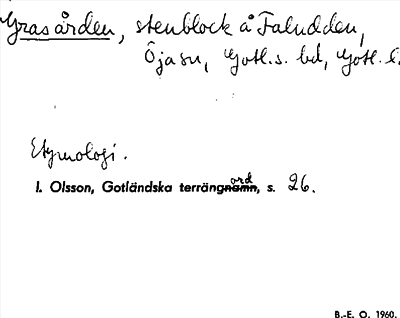 Grasården, stenblock å Faludden,
Öja sn, Gotl.s. bd, Gotl. l.
Etymologi.
I. Olsson, Gotländska terrängnamn ord, s. 26.
B.-E. O. 1960.